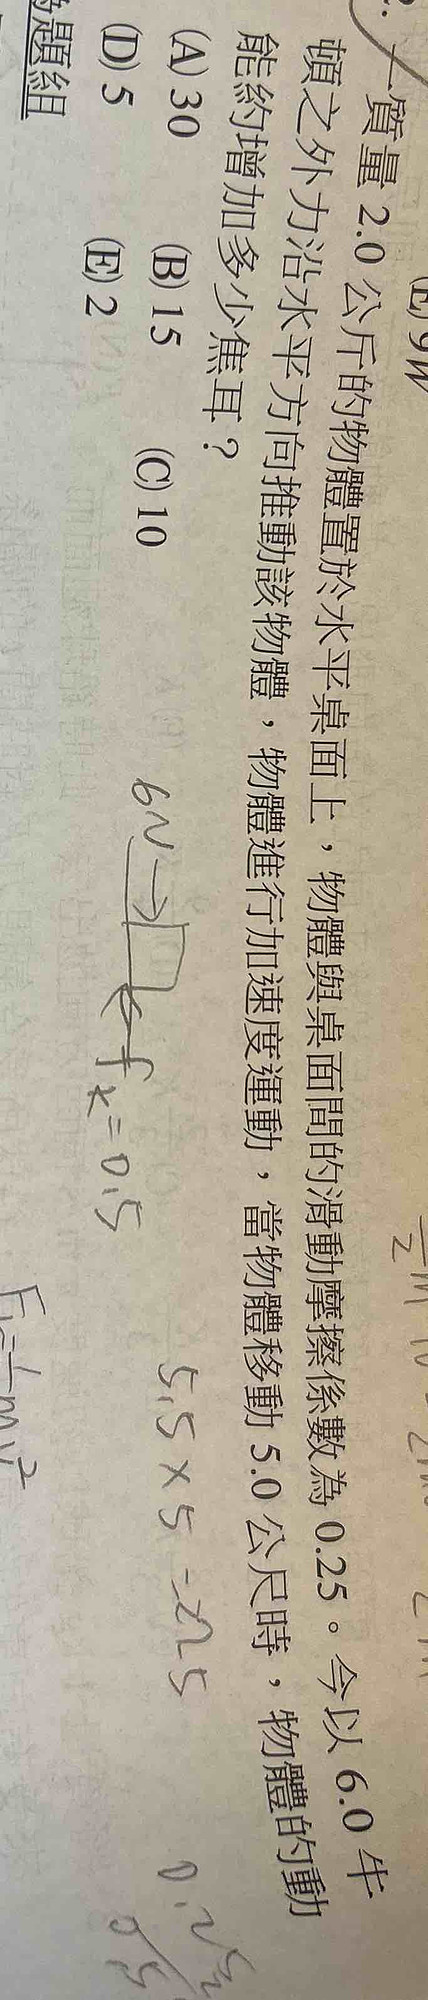 (E) 9W
一質量 2.0 公斤的物體置於水平桌面上，物體與桌面間的滑動摩擦係數為 0.25。今以 6.0 牛
頓之外力沿水平方向推動該物體，物體進行加速度運動，當物體移動 5.0 公尺時，物體的動
能約增加多少焦耳？
(A) 30 (B) 15 (C) 10
(D) 5 (E) 2
6N → f
k = 0.5
5.5 × 5 =
題組